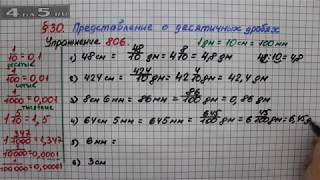 4 на 5 .ru
§30. Представление о десятичных дробях
Упражнение 806. 1дм = 10см = 100мм
1/10 = 0,1
десятые
1/100 = 0,01
сотые
1/1000 = 0,001
тысячные
1 5/10 = 1,5
1 347/1000 = 1,347
1/10000 = 0,0001
1/100000 = 0,00001
1) 48см = 48/10 дм = 4 8/10 дм = 4,8дм 48:10 = 4,8
2) 424см = 424/10 дм = 42,4дм
3) 8см 6мм = 86мм = 86/100 дм = 0,86дм
4) 64см 5мм = 645мм = 645/100 дм = 6 45/100 дм = 6,45
5) 6мм =
6) 3см